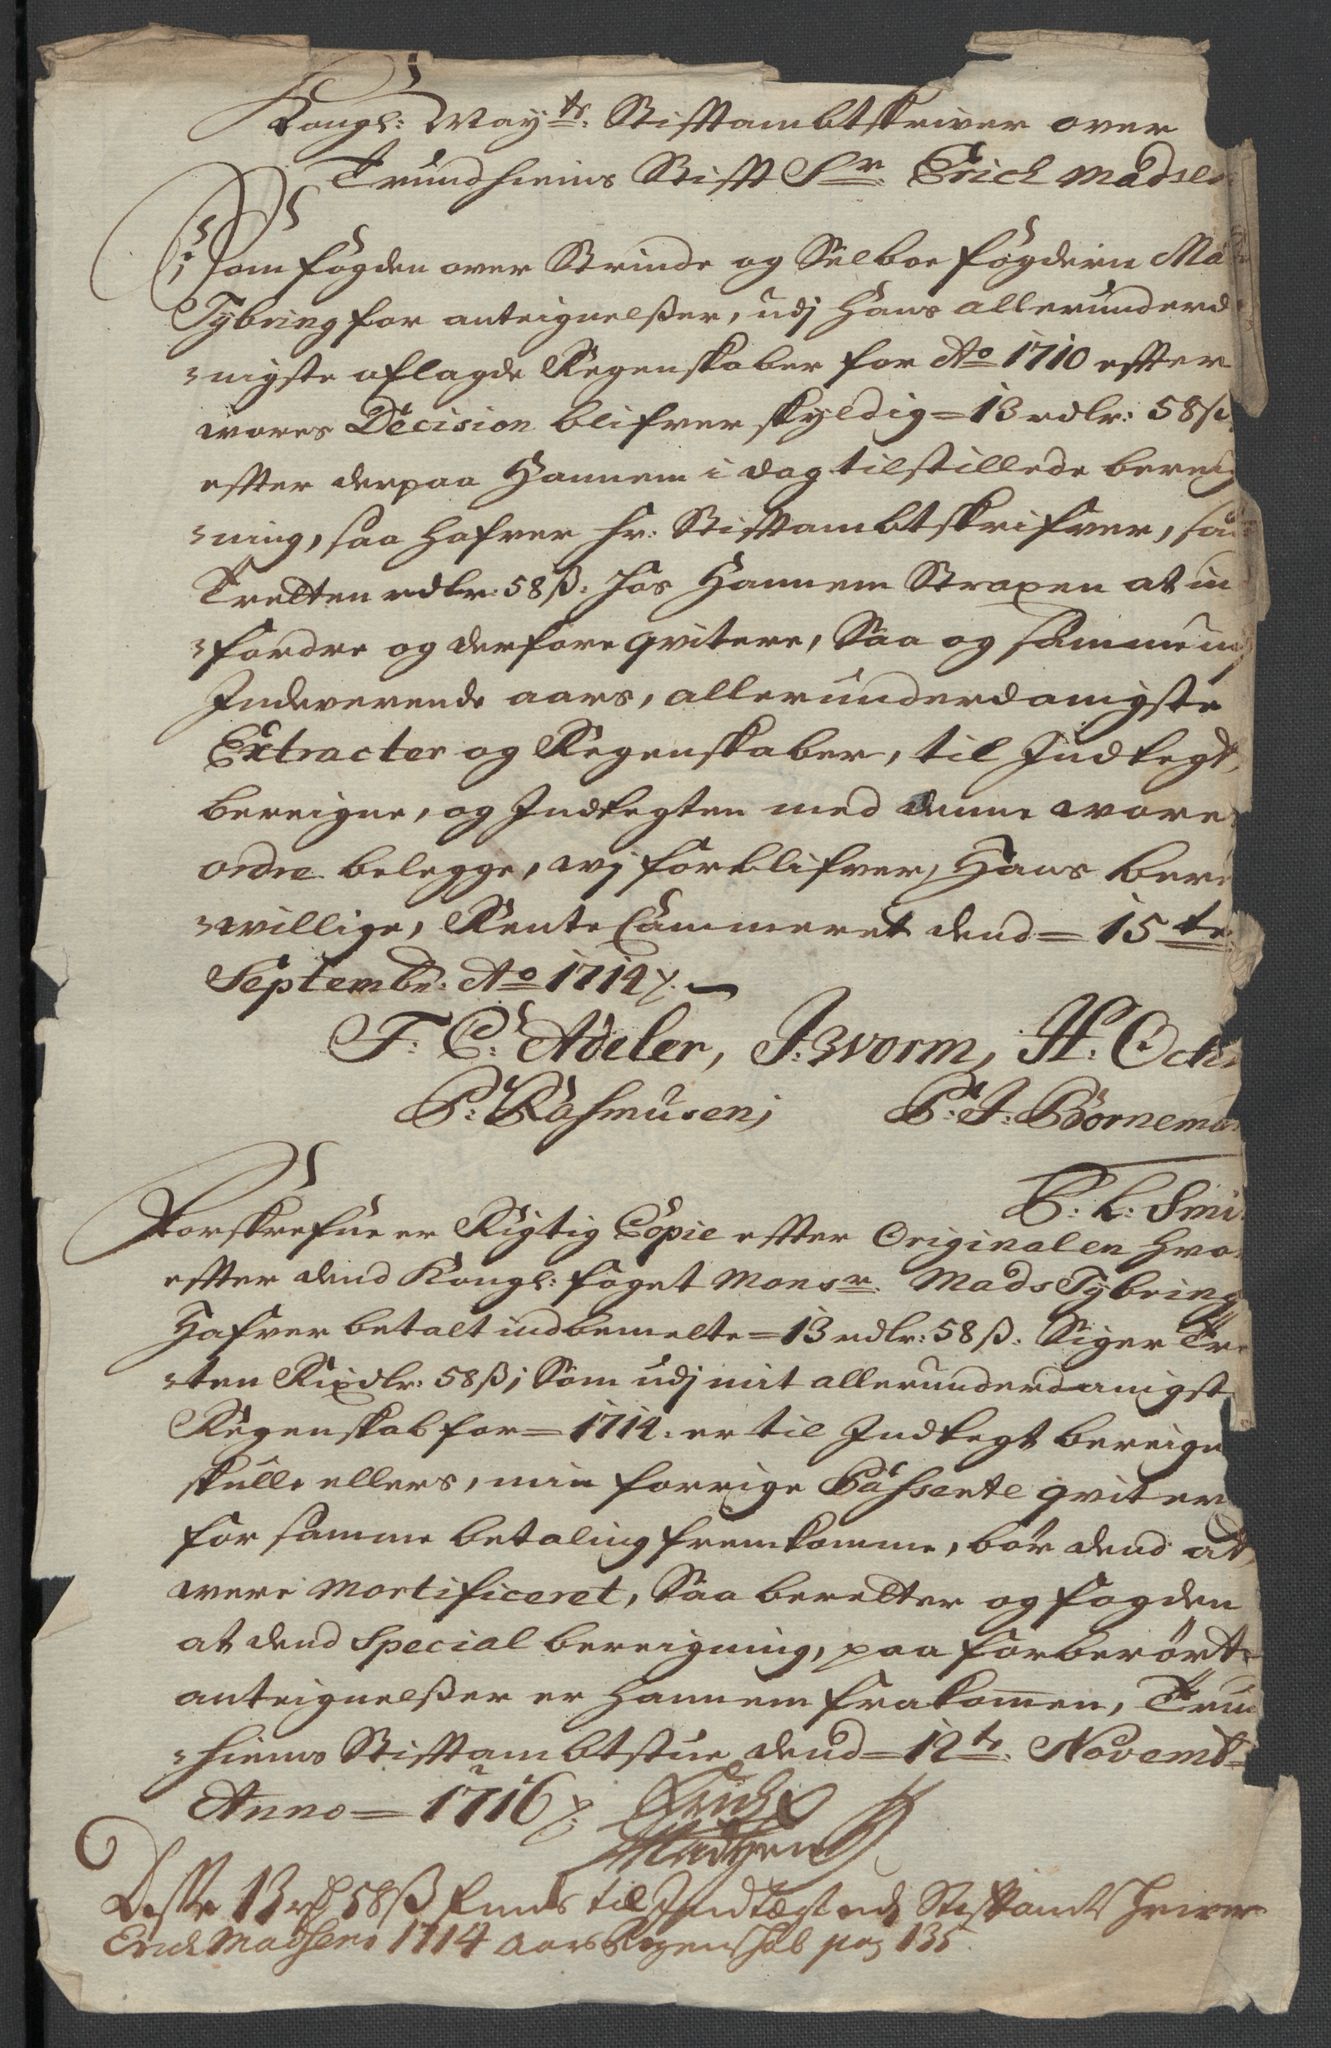 Kongl: May<sup>ts</sup>: Stifftambtskriver over
Trundhiems Stifft S<sup>r</sup>. Erich Madsen
Som fogden over Strinde og Selboe fogderie Ma
Tybring for anteignelßer, udj Hans allerunderd
nigste aflagde Regenskaber for Ao 1710 effter
wores Decision blifver skyldig = 13 rdlr: 58 ß
effter derpaa Hannem i dag tilstillede bereig
ning, saa hafver hr: Stifftambtskrifver, saa
Tretten rdlr: 58 ß. hos Hannem Straxen at in
fordre og derfore qvitere, Saa og samme
Indeverende aars, allerunderdanigste
Extracter og Regenskaber, til Indtegt
bereigne, og Indtegten med denne wore
ordre belegge, wj forblifver, Hans bere
willige, Rente Cammeret dend = 15 te
Septembr. Ao 1714 ⁒
F. C. Adeler, J: Worm, H. Ock
P: Rasmusen; P. J. Börneman
C. L. Smi
Forskrefne er Rigtig Copie effter Originalen hvor
effter dend Kongl: foget Mons<sup>r</sup>. Mads Tybring
Hafver betalt indbemelte = 13 rdlr: 58 ß. Siger Tre
ten Rixdlr: 58 ß; Som udj mit allerunderdanigst
Regenskab for = 1714. er til Indtegt bereigne
skulle ellers, min forrige Passerte qviter
for samme betaling fremkomme, bör dend at
were Mortificeret, Saa beretter og fogden
at dend Special bereigning, paa forberört
anteignelßer er Hannem frakommen, Trun
hiems Stifftambtstue dend = 12 te. Novembr
Anno = 1716 ⁒ Erich
Madsen
Desse 13 rd 58 ß findes til Indtægt udj Stiftamts skriver
Erich Madsens 1714 Aars Regenskab pag 135.